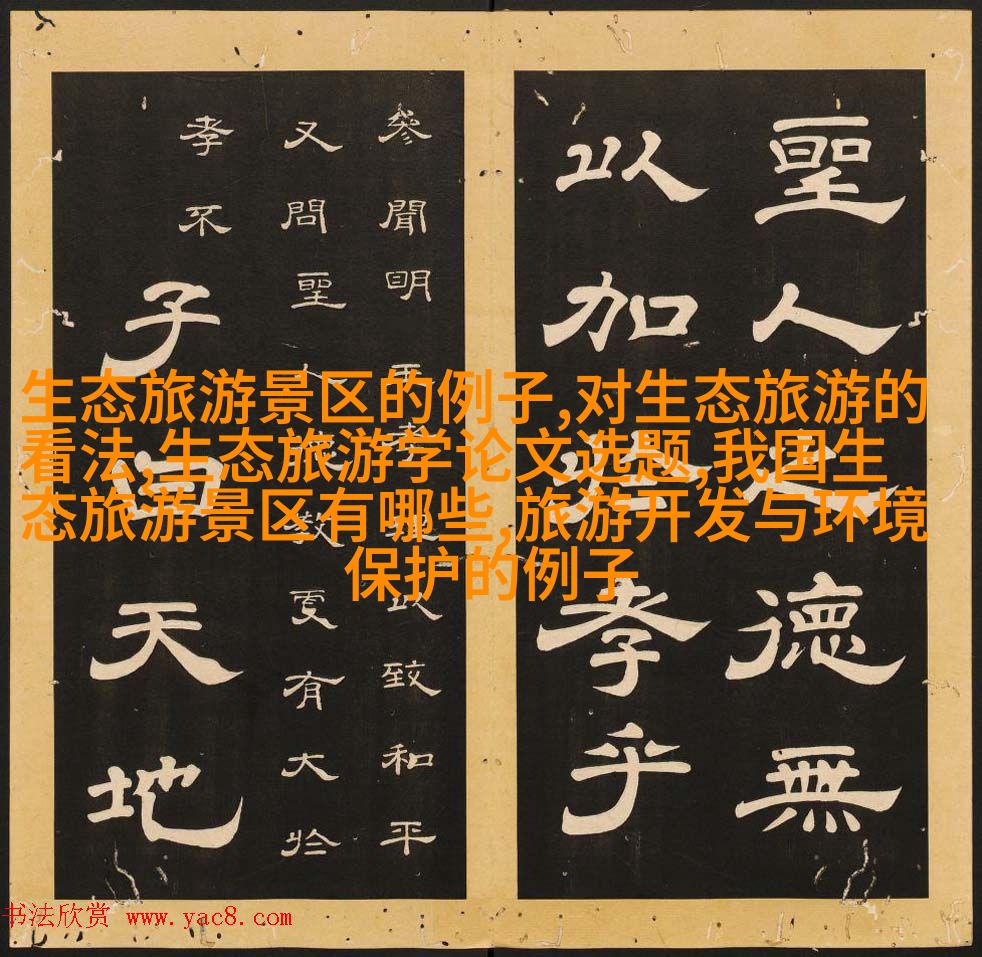 生态旅游景区的例子,对生态旅游的
看法,生态旅游学论文选题,我国生
态旅游景区有哪些,旅游开发与环境
保护的例子
聖人之德無
以加於孝乎
參聞明王孝理以致和平
又問聖人德教更有大於
孝不
子曰天地
书法欣赏 www.yac8.com